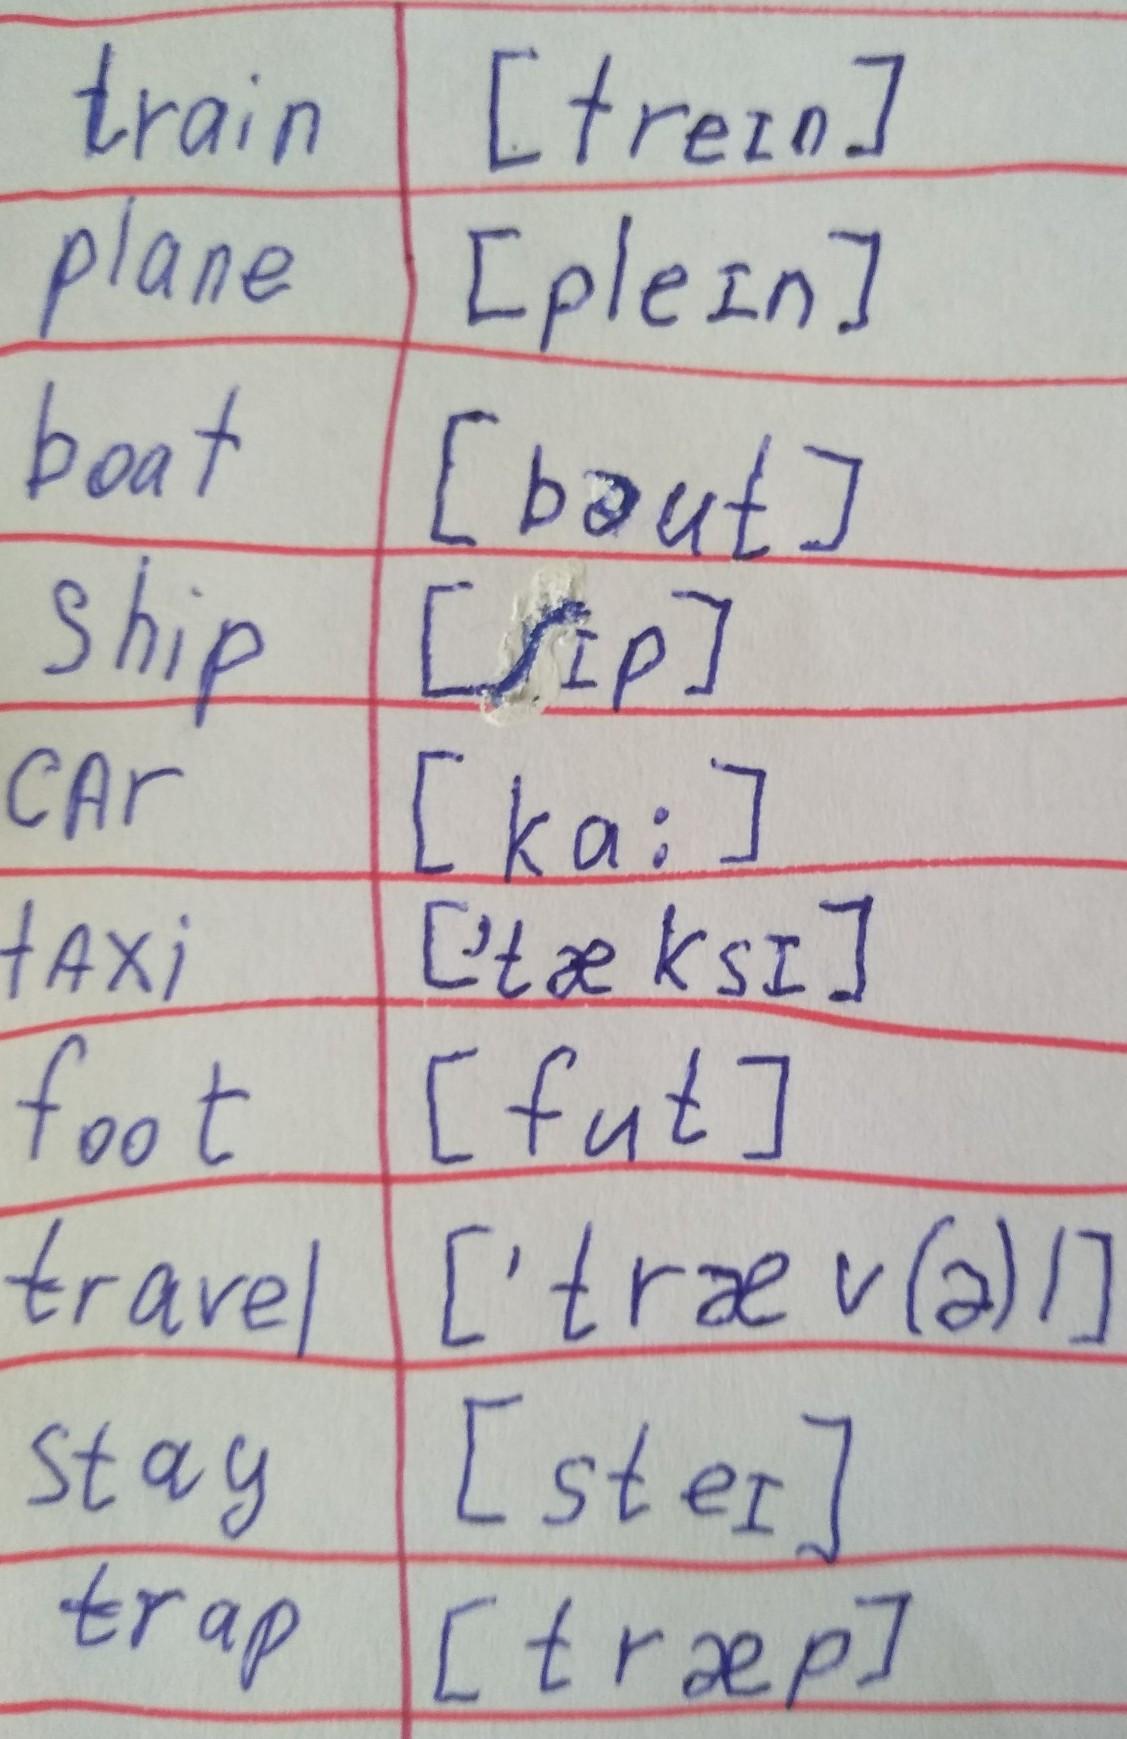 train [treɪn]
plane [pleɪn]
boat [bəut]
ship [ʃɪp]
cAr [ka:]
tAxi ['tæksɪ]
foot [fut]
travel ['træv(ə)l]
stay [steɪ]
trap [træp]